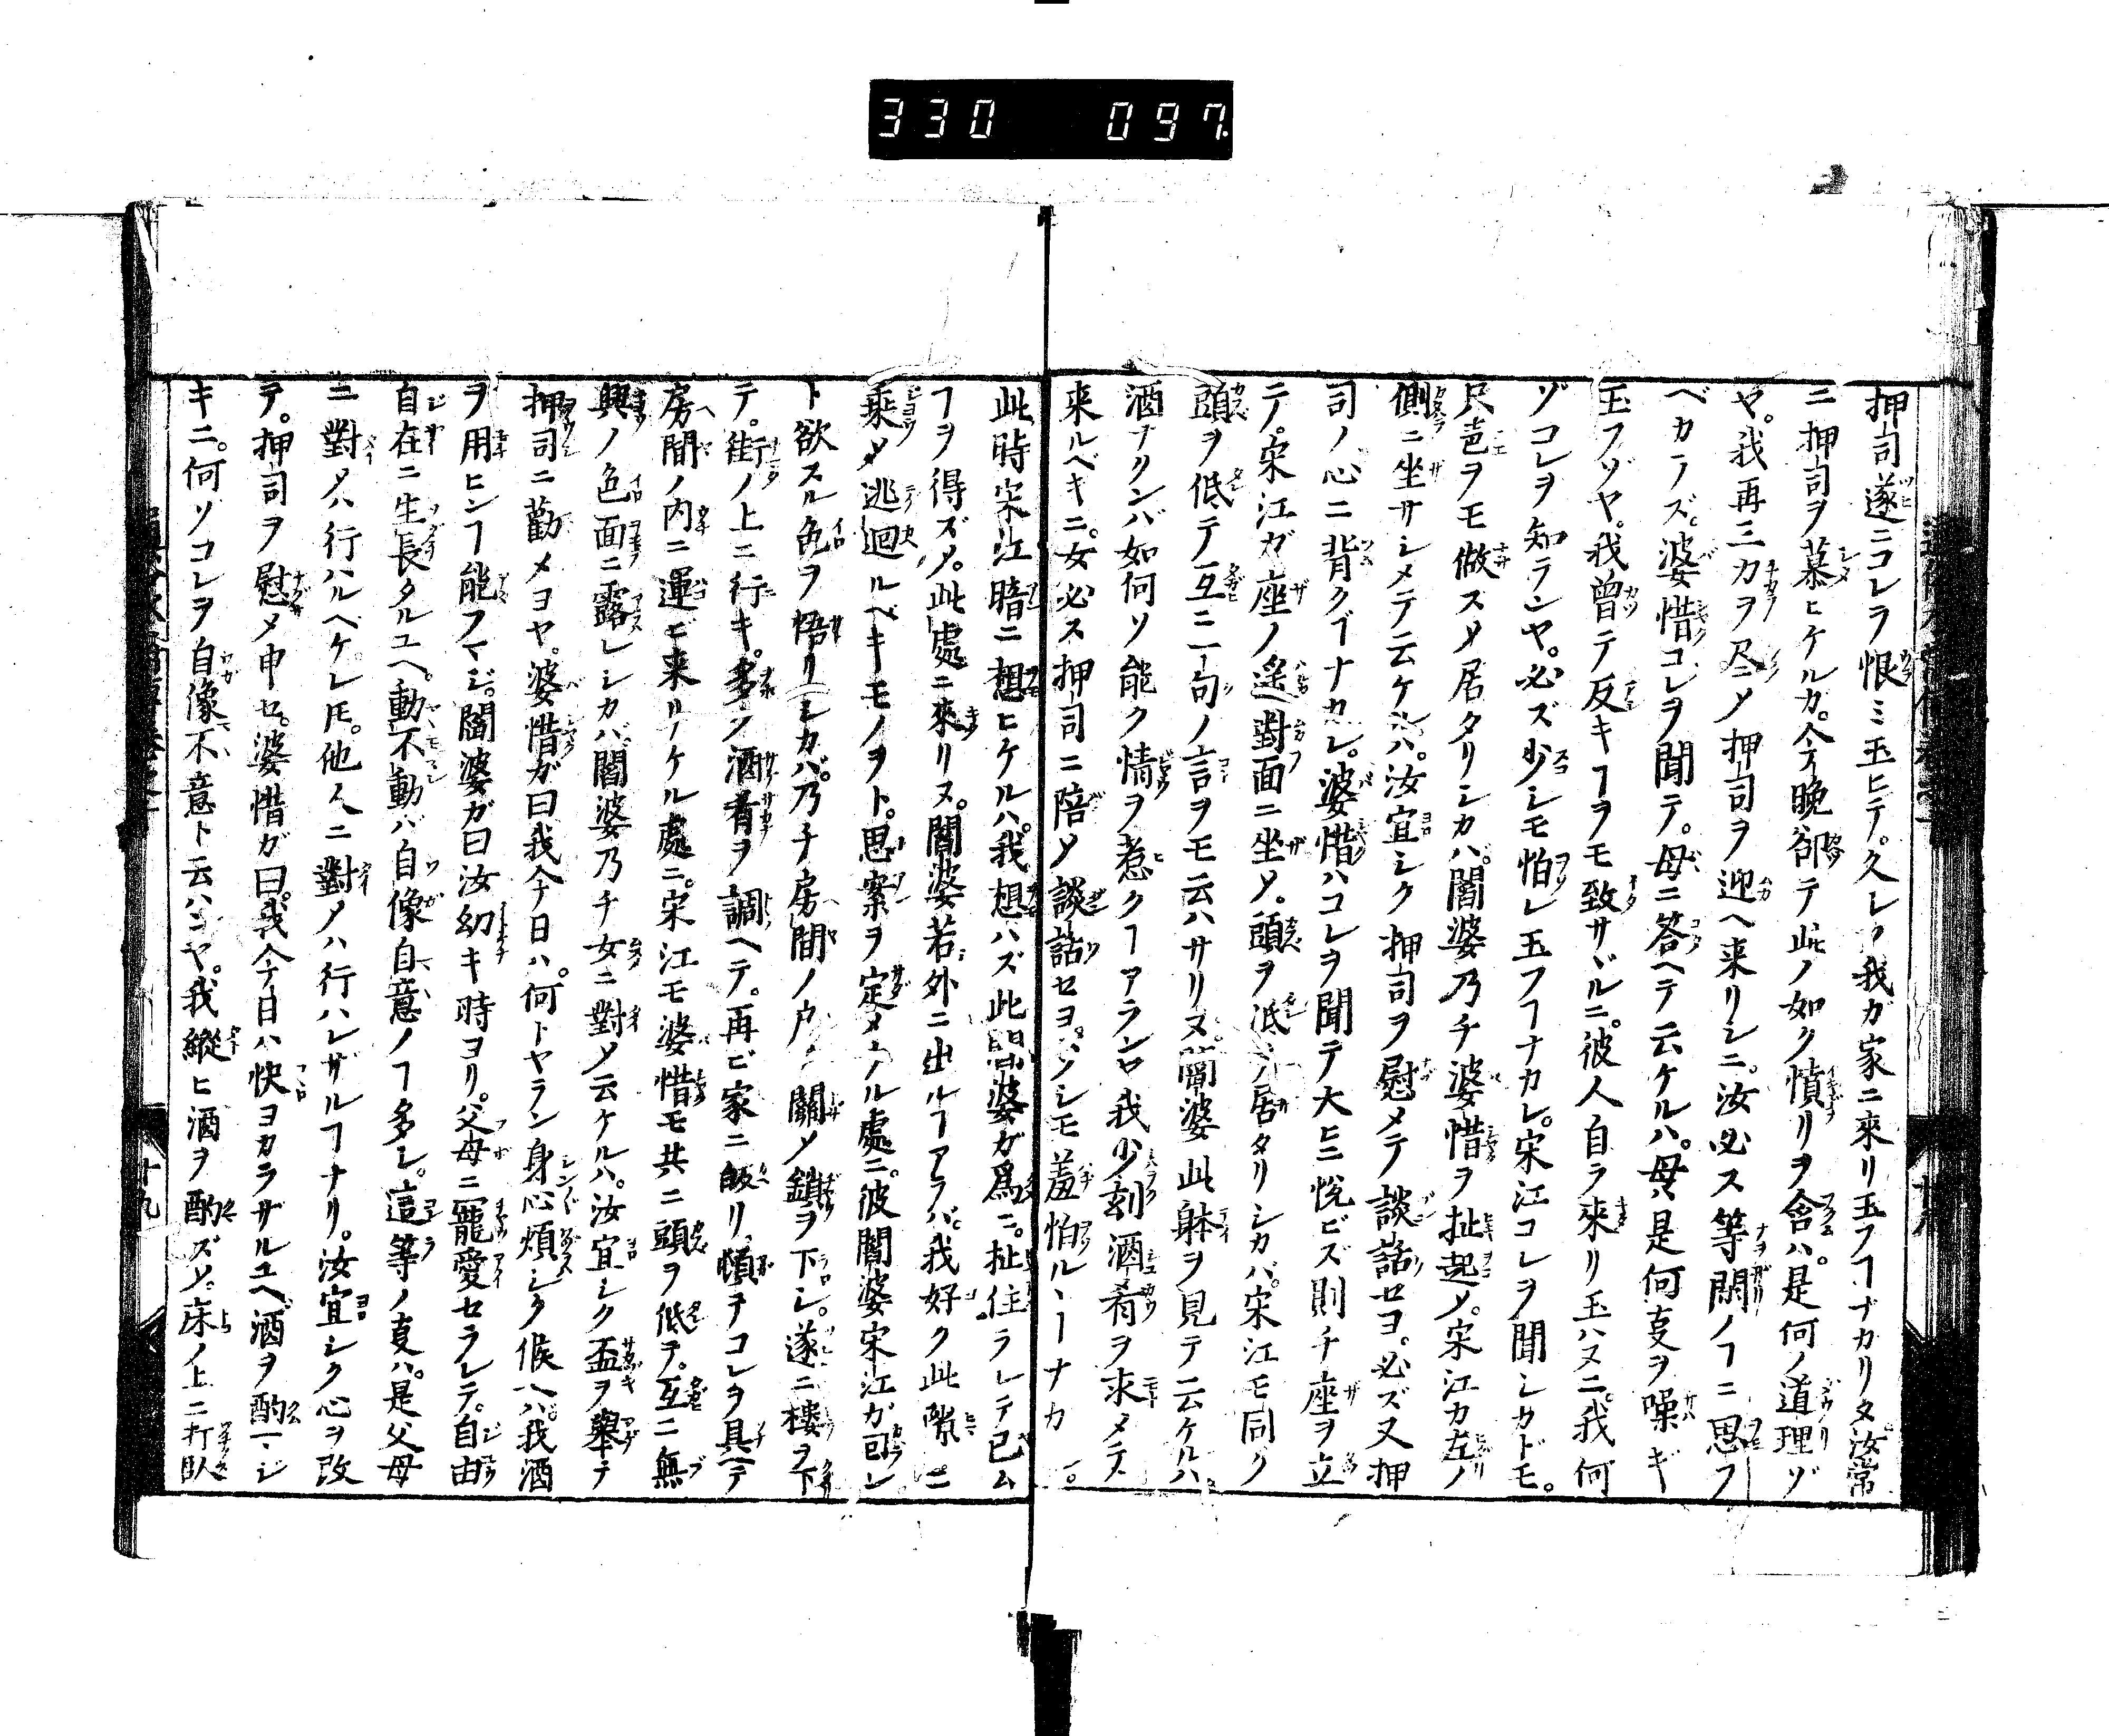 330 097
押司遂ニコレヲ恨ミ玉ヒテ。久シク我ガ家ニ來リ玉フヿナカリタ汝常
ニ押司ヲ慕ヒケルカ。今晩卻テ此ノ如ク憤リヲ含ハ。是何ノ道理ゾ
ヤ。我再三カヲ尽メ押司ヲ迎ヘ来リシニ。汝必ス等閑ノヿニ思フ
ベカラズ。婆惜コレヲ聞テ。母ニ答ヘテ云ケルハ。母ハ是何支ヲ噪ギ
玉フゾヤ。我曽テ反キヿヲモ致サヾルニ。彼人自ラ來リ玉ハヌニ。我何
ゾコレヲ知ランヤ。必ズ少シモ怕レ玉フヿナカレ。宋江コレヲ聞シカドモ。
只壱ヲモ做スメ居タリシカハ。閻婆乃チ婆惜ヲ扯起メ。宋江カ左ノ
側ニ坐サシメテ云ケルハ。汝宜シク押司ヲ慰メテ談話セヨ。必ズ又押
司ノ心ニ背クヿナカレ。婆惜ハコレヲ聞テ大ニ悦ビズ則チ座ヲ立
テ。宋江ガ座ノ遙對面ニ坐メ。頭ヲ低テ居タリシカバ。宋江モ同ク
頭ヲ低テ互ニ一句ノ言ヲモ云ハサリヌ。閻婆此躰ヲ見テ云ケルハ
酒ナクンバ如何ソ能ク情ヲ惹クヿアランヤ我少刻酒肴ヲ求メテ
来ルベキニ。女必ス押司ニ陪メ談話セヨ。少シモ羞怕ルヽヿナカレ。
此時宋江暗ニ想ヒケルハ。我想ハズ此閻婆ガ爲ニ。扯住ラレテ已ム
ヿヲ得ズメ。此處ニ來リヌ。閻婆若外ニ出ルヿアラバ。我好ク此隙ニ
乗メ逃迴ルベキモノヲト。思案ヲ定メタル處ニ。彼閻婆宋江ガ回ン
ト欲スル色ヲ悟リシカバ。乃チ房間ノ戸ヲ關メ鎖ヲ下シ。遂ニ樓ヲ下
テ。街ノ上ニ行キ。多ク酒肴ヲ調ヘテ。再ビ家ニ皈リ。慎ヲコレヲ具テ
房間ノ内ニ運ビ来リケル處ニ。宋江モ婆惜モ共ニ頭ヲ低テ。互ニ無
興ノ色面ニ露レシカバ閻婆乃チ女ニ對メ云ケルハ。汝宜シク盃ヲ擧テ
押司ニ勸メヨヤ。婆惜ガ曰我今日ハ。何トヤラン身心煩シク候ヘハ。我酒
ヲ用ヒンヿ能フマジ。閻婆ガ曰汝幼キ時ヨリ。父母ニ寵愛セラレテ。自由
自在ニ生長タルユヘ。動不動バ自像自意ノヿ多シ。這等ノ支ハ。是父母
ニ對メハ行ハルヘケレ𪜈。他人ニ對メハ行ハレザルヿナリ。汝宜シク心ヲ改
テ。押司ヲ慰メ申セ。婆惜ガ曰。我今日ハ快ヨカラザルユヘ酒ヲ酌マジ
キニ。何ソコレヲ自像不意ト云ハンヤ。我縱ヒ酒ヲ酌ズメ。床ノ上ニ打臥
十九